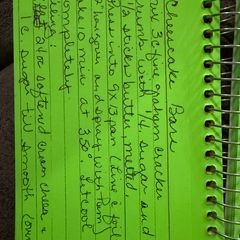 Cheesecake Bars
3c fine graham cracker
crumbs with 1/4 sugar and
1/2 sticks butter, melted,
press into 9x13 pan (line c foil
and spray with Pam)
10 min at 350°. Let cool
completely
24 oz softend cream cheese &
c sugar til smooth (over